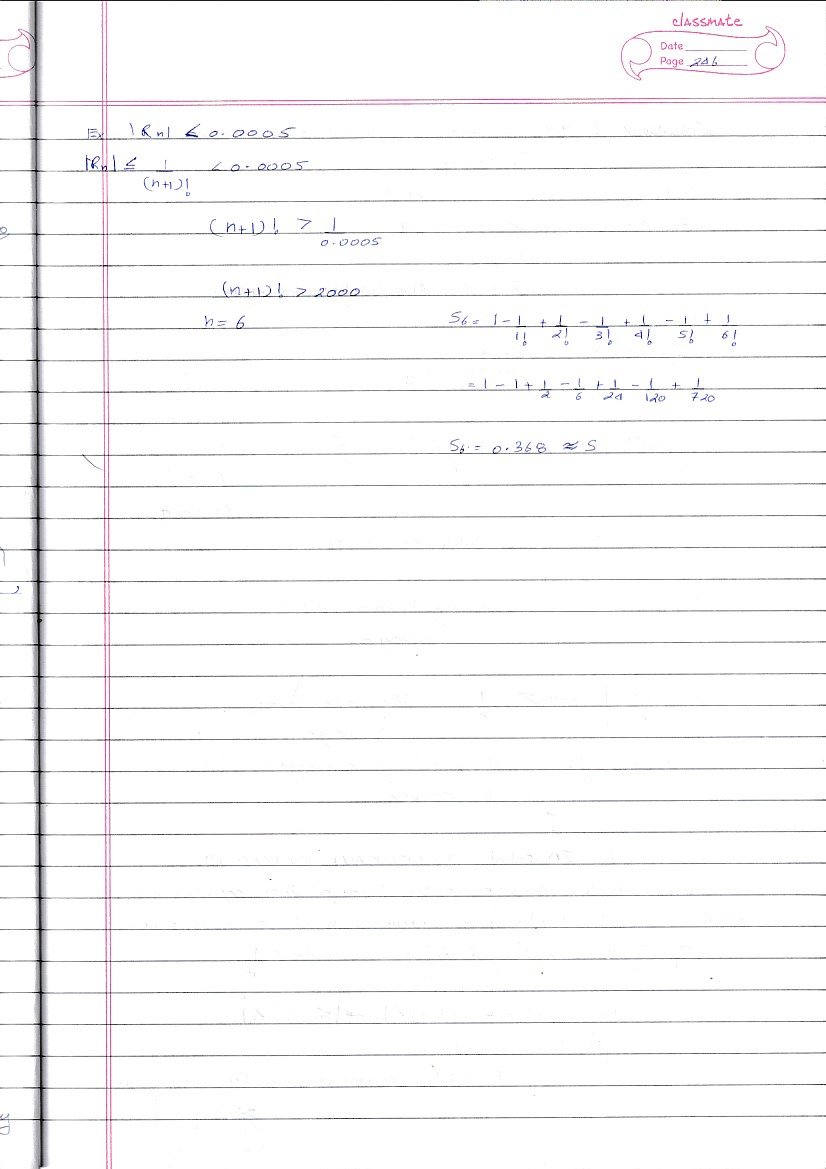 classmate
Date
Page 246
Ex |Rn| < 0.0005
|Rn| ≤ 1/(n+1)! < 0.0005
(n+1)! > 1/0.0005
(n+1)! > 2000
n = 6
S6 = 1 - 1/1! + 1/2! - 1/3! + 1/4! - 1/5! + 1/6!
= 1 - 1 + 1/2 - 1/6 + 1/24 - 1/120 + 1/720
S6 = 0.368 ≈ S